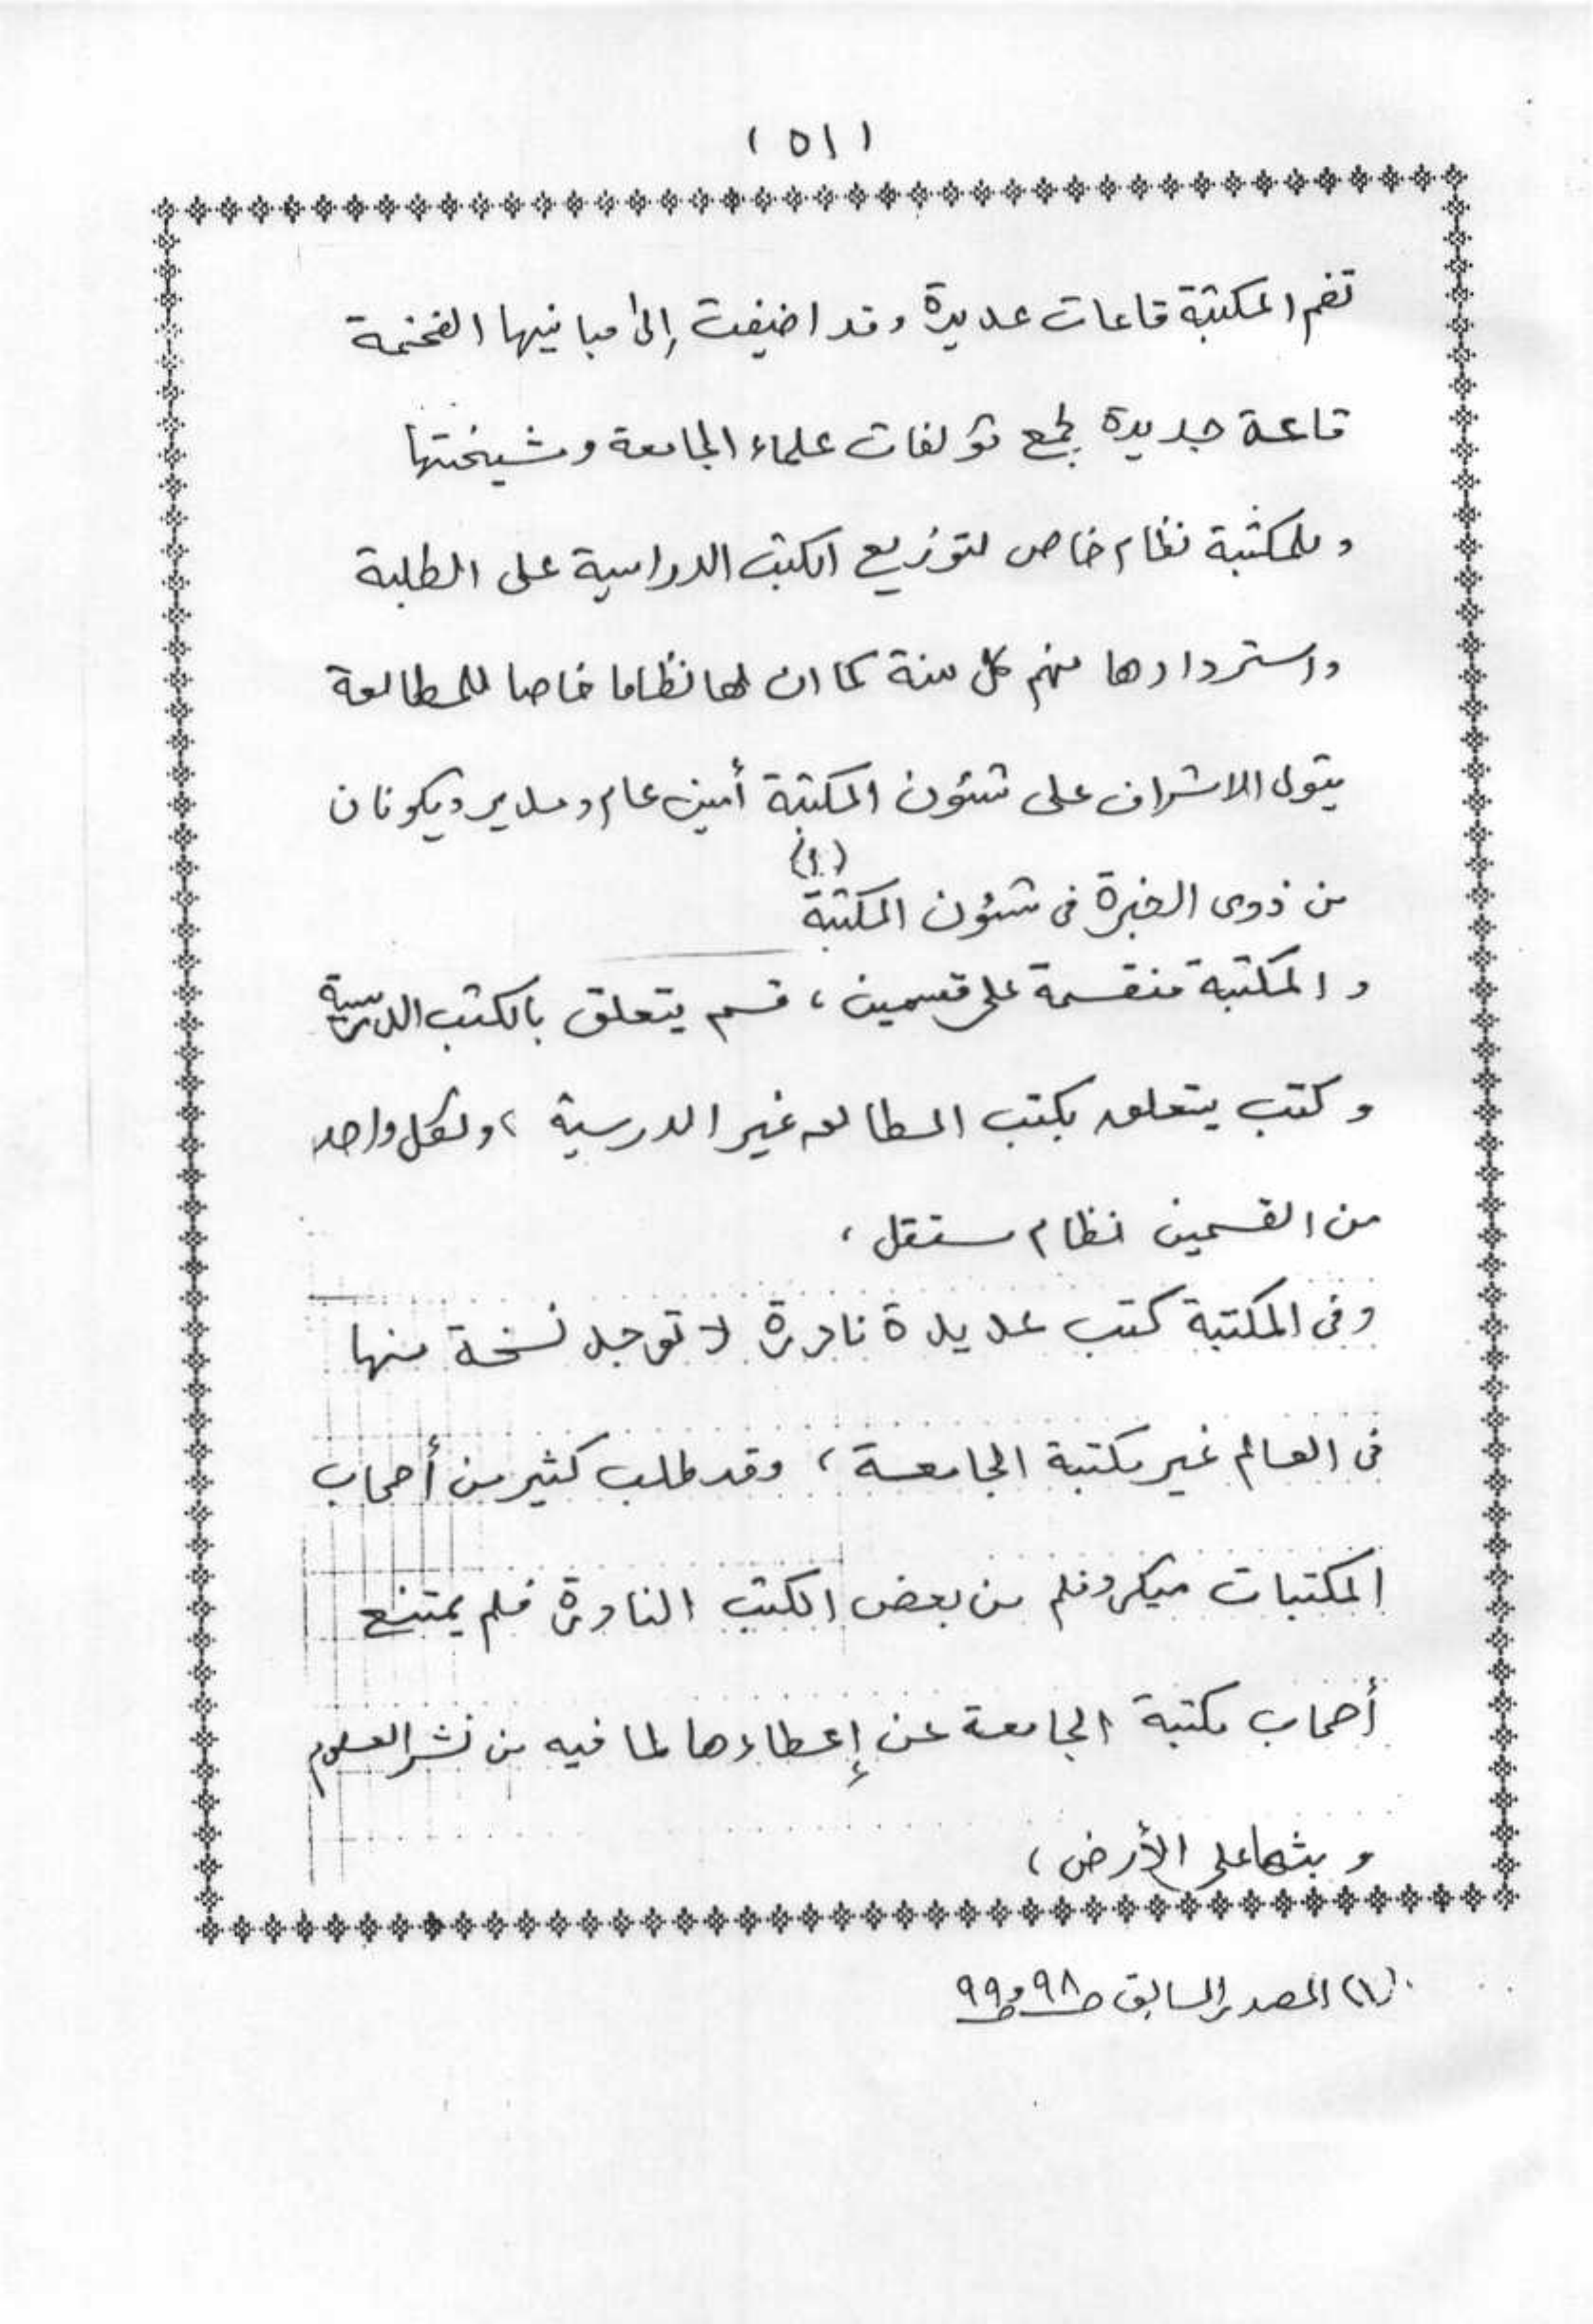 (٥١)
تضم المكتبة قاعات عديدة وقد اضيفت إلى مبانيها الفخمة
قاعة جديدة لجمع مؤلفات علماء الجامعة ومشيختها
وللمكتبة نظام خاص لتوزيع الكتب الدراسية على الطلبة
واستردادها منهم كل سنة كما ان لها نظاما خاصا للمطالعة
يتولى الاشراف على شئون المكتبة أمين عام ومدير ويكونان
من ذوى الخبرة فى شئون المكتبة (١)
والمكتبة منقسمة على قسمين، قسم يتعلق بالكتب الدرسية
وكتب يتعلق بكتب المطالعه غير الدرسية، ولكل واحد
من القسمين نظام مستقل،
وفى المكتبة كتب عديدة نادرة لا توجد نسخة منها
فى العالم غير مكتبة الجامعة، وقد طلب كثير من أصحاب
المكتبات ميكروفلم من بعض الكتب النادرة فلم يمتنع
أصحاب مكتبة الجامعة عن إعطاءها لما فيه من نشر العلوم
وبثها على الأرض،
(١) المصدر السابق ص٩٨ وص٩٩